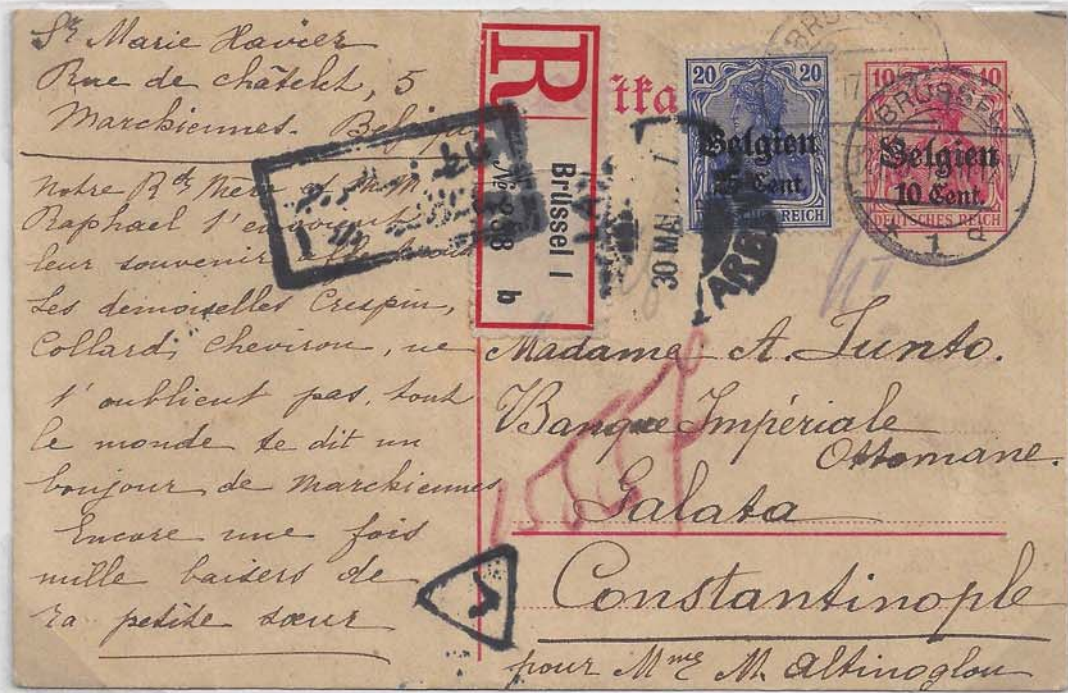 Sr Marie Xavier
Rue de châtelet, 5
Marchiennes. Belgique
Notre Rde Mère et M. M.
Raphael t'envoient
leur souvenir
Les demoiselles Crespin,
Collard, Chevirou, ne
t'oublient pas, tout
le monde te dit un
bonjour de Marchiennes
Encore une fois
mille baisers de
ta petite sœur
R
Brüssel 1
b
No 268
tka
20 20
Belgien
25 Cent.
DEUTSCHES REICH
10 10
Belgien
10 Cent.
DEUTSCHES REICH
BRÜSSEL
BRÜSSEL
* 1 d
30 MAI
Madame A. Junto.
Banque Impériale
Ottomane.
Galata
Constantinople
pour Mme M. Altinoglou